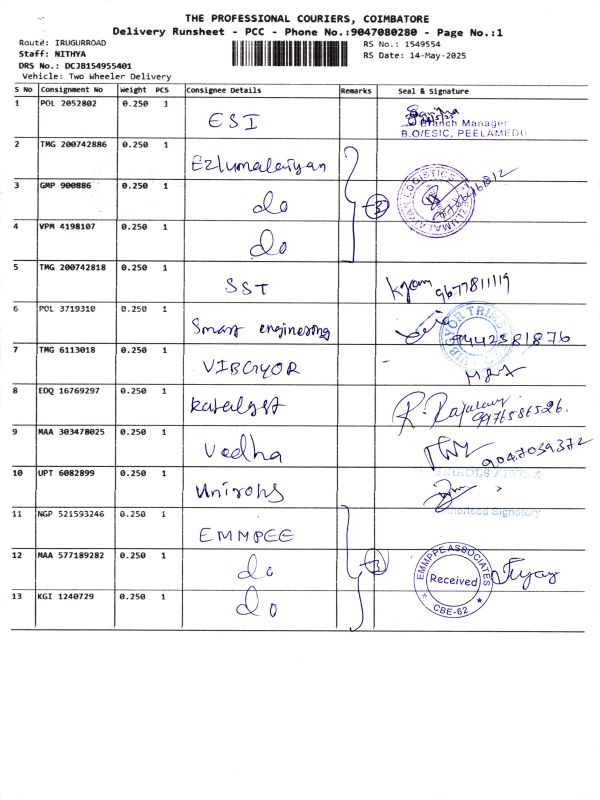 THE PROFESSIONAL COURIERS, COIMBATORE
Delivery Runsheet - PCC - Phone No.:9047080280 - Page No.:1
Route: IRUGURROAD
Staff: NITHYA
DRS No.: DCJB154955401
Vehicle: Two Wheeler Delivery
RS No.: 1549554
RS Date: 14-May-2025
S No Consignment No Weight PCS Consignee Details Remarks Seal & Signature
1 POL 2052802 0.250 1 ESI
Branch Manager
B.O/ESIC, PEELAMEDU
2 TMG 200742886 0.250 1 Ezlumalaiyan
3 GMP 900886 0.250 1 do 3
4 VPM 4198107 0.250 1 do
5 TMG 200742818 0.250 1 SST 9677811119
6 POL 3719310 0.250 1 Smart engineering 9442581876
7 TMG 6113018 0.250 1 VIBGYOR
8 EDQ 16769297 0.250 1 Katalyst R. Rajaram
9976586526.
9 MAA 303478025 0.250 1 Vedha 9047039372
10 UPT 6082899 0.250 1 Unirols
UNIROLS AIRTEX
Authorised Signatory
11 NGP 521593246 0.250 1 EMMPEE
12 MAA 577189282 0.250 1 do 3
EMMPPE ASSOCIATES
Received
CBE-62
13 KGI 1240729 0.250 1 do